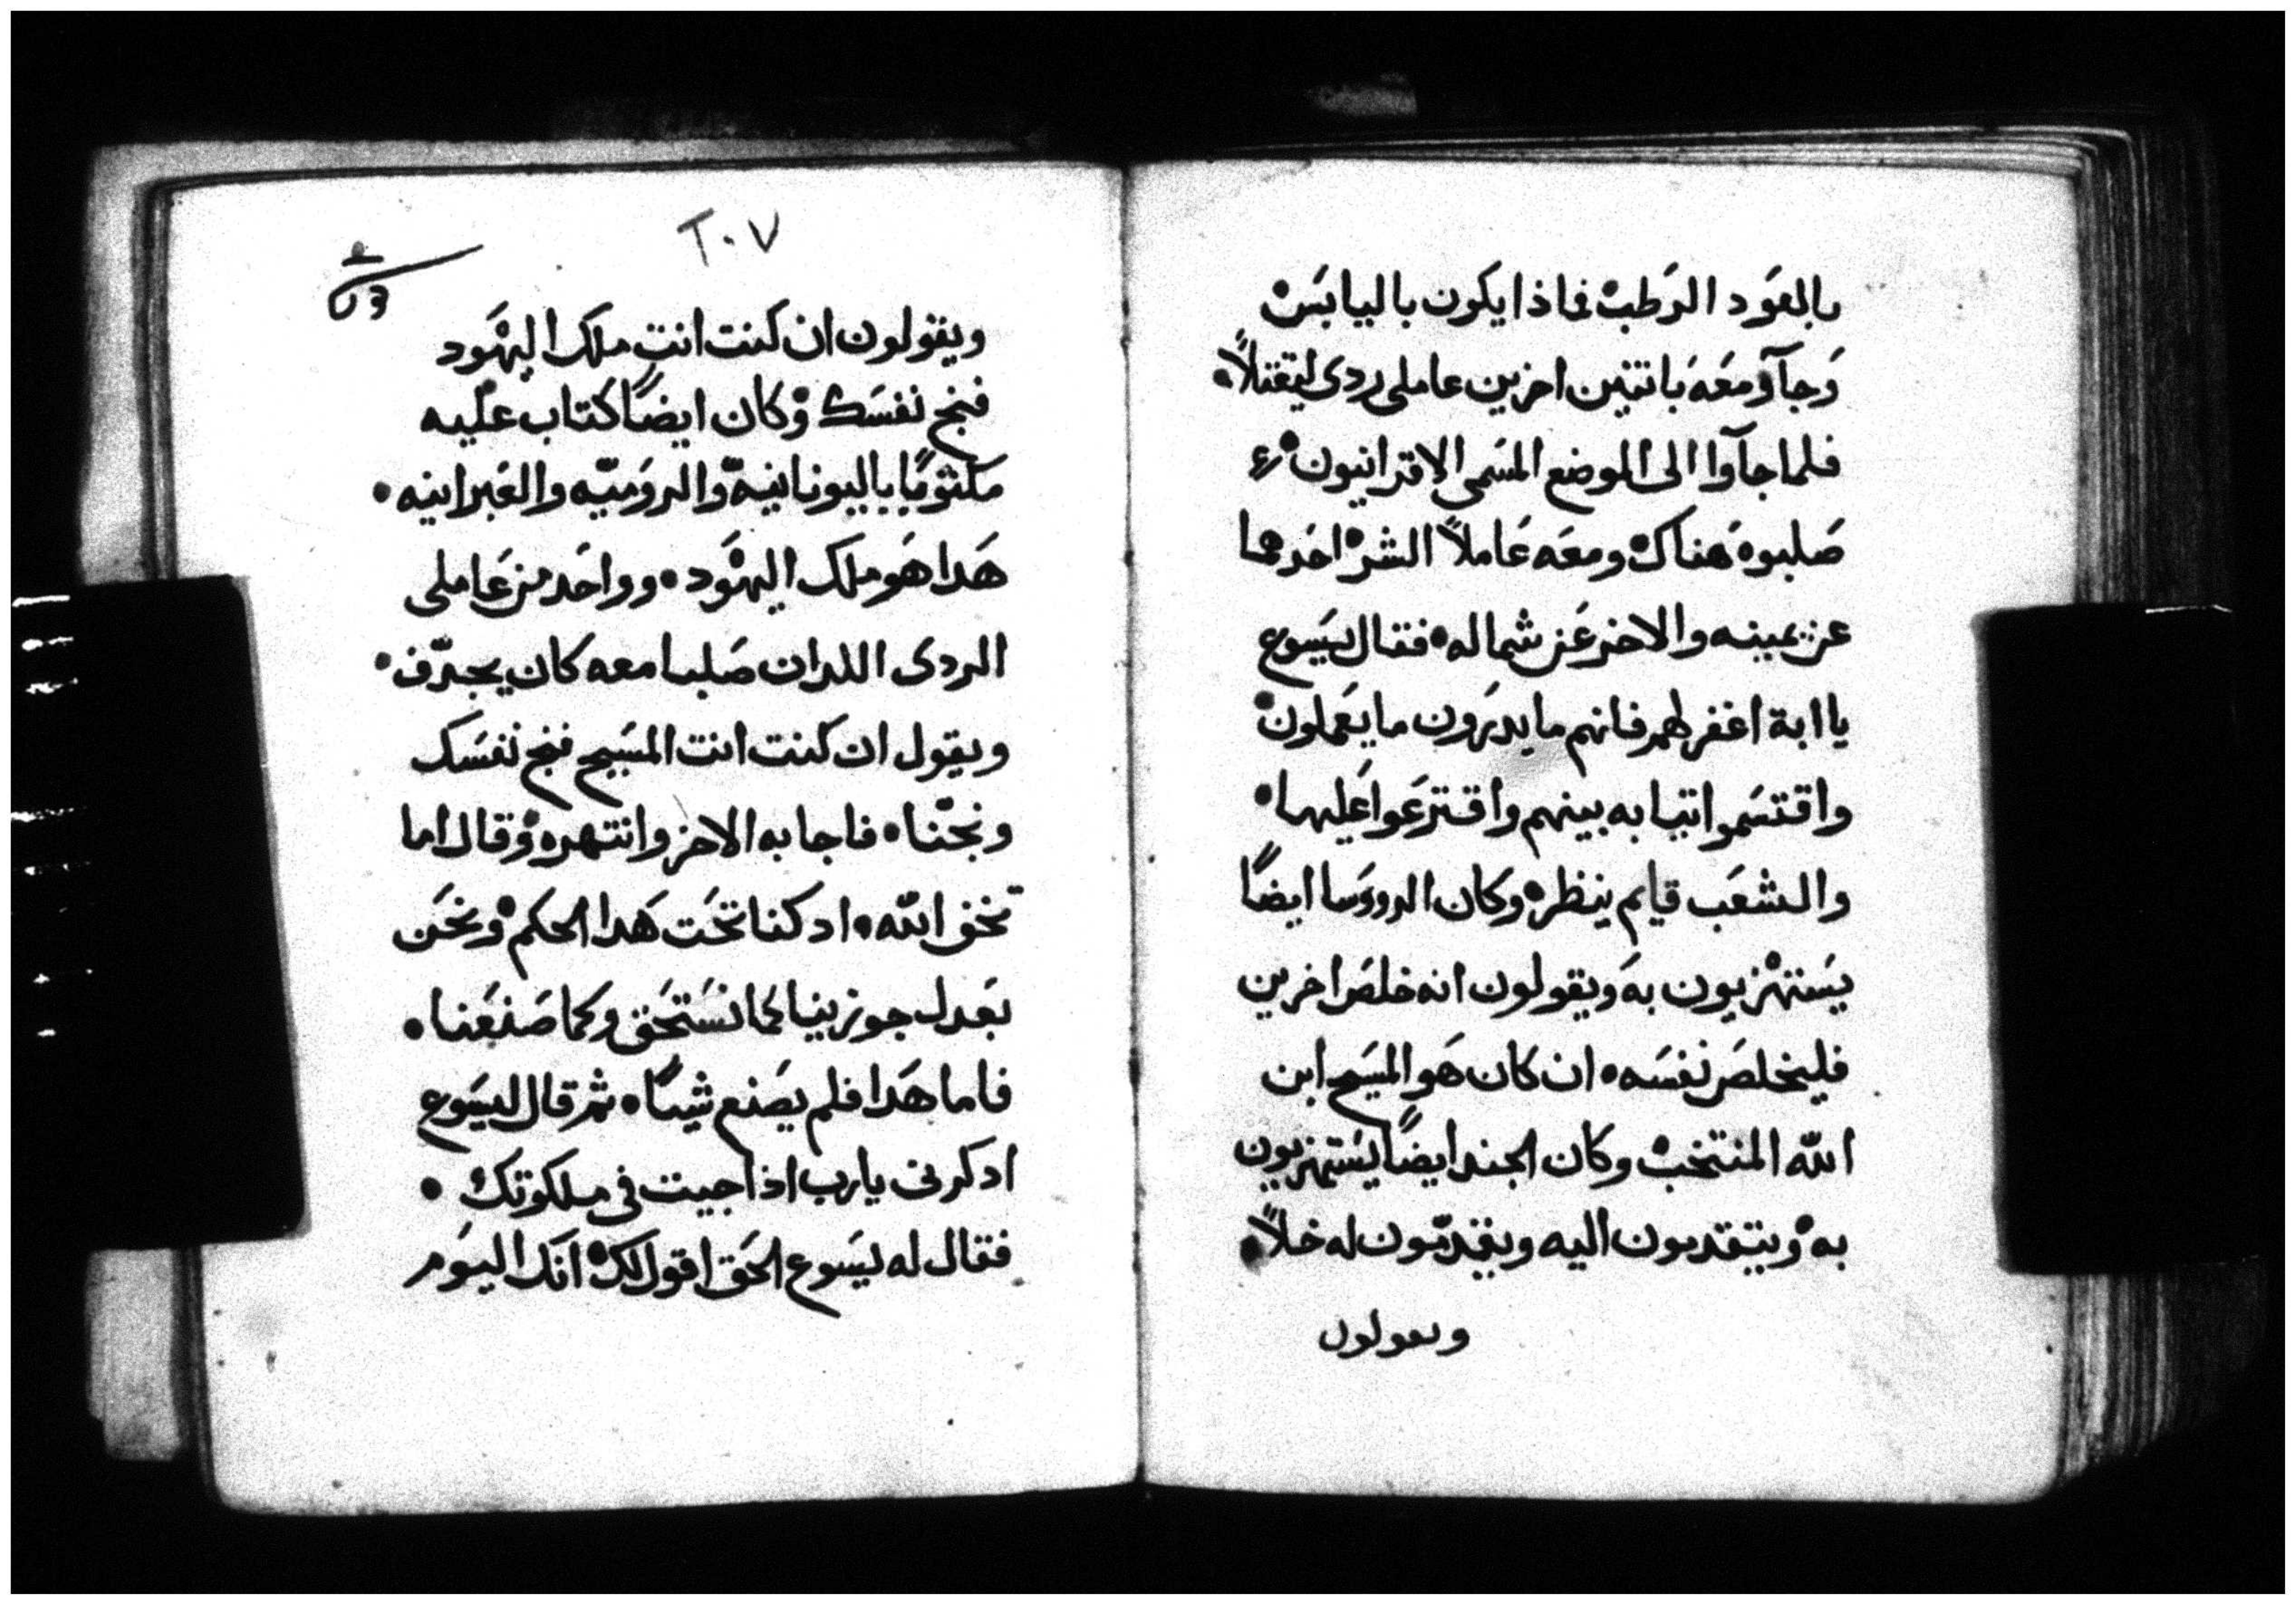 بالعود الرطب فماذا يكون باليابس
وجآو معه باتنين اخرين عاملى ردى ليقتلاً
فلما جآوا الى الموضع المسمى الاقرانيون
صلبوه هناك ومعه عاملاً الشر احدهما
عن يمينه والاخر عن شماله فقال يسوع
يا ابة اغفر لهم فانهم ما يدرون ما يعملون
واقتسموا تيابه بينهم واقترعوا عليها
والشعب قيام ينظر وكان الرووسا ايضاً
يستهزيون به ويقولون انه خلص اخرين
فليخلص نفسه ان كان هو المسيح ابن
الله المنتخب وكان الجند ايضاً يستهزيون
به ويتقدمون اليه ويقدمون له خلاً
ويقولون
٢٠٧
ويقولون ان كنت انت ملك اليهود
فنج نفسك وكان ايضاً كتاب عليه
مكتوباً باليونانيه والروميه والعبرانيه
هدا هو ملك اليهود وواحد من عاملى
الردى اللدان صلبا معه كان يجدّف
ويقول ان كنت انت المسيح فنج نفسك
ونجّنا فاجابه الاخر وانتهره وقال اما
تخف الله اد كنا تحت هدا الحكم ونحن
بعدل جوزينا كما نستحق وكما صنعنا
فاما هدا فلم يصنع شياً ثم قال ليسوع
ادكرنى يارب اذا جيت فى ملكوتك
فقال له يسوع الحق اقول لك انك اليوم